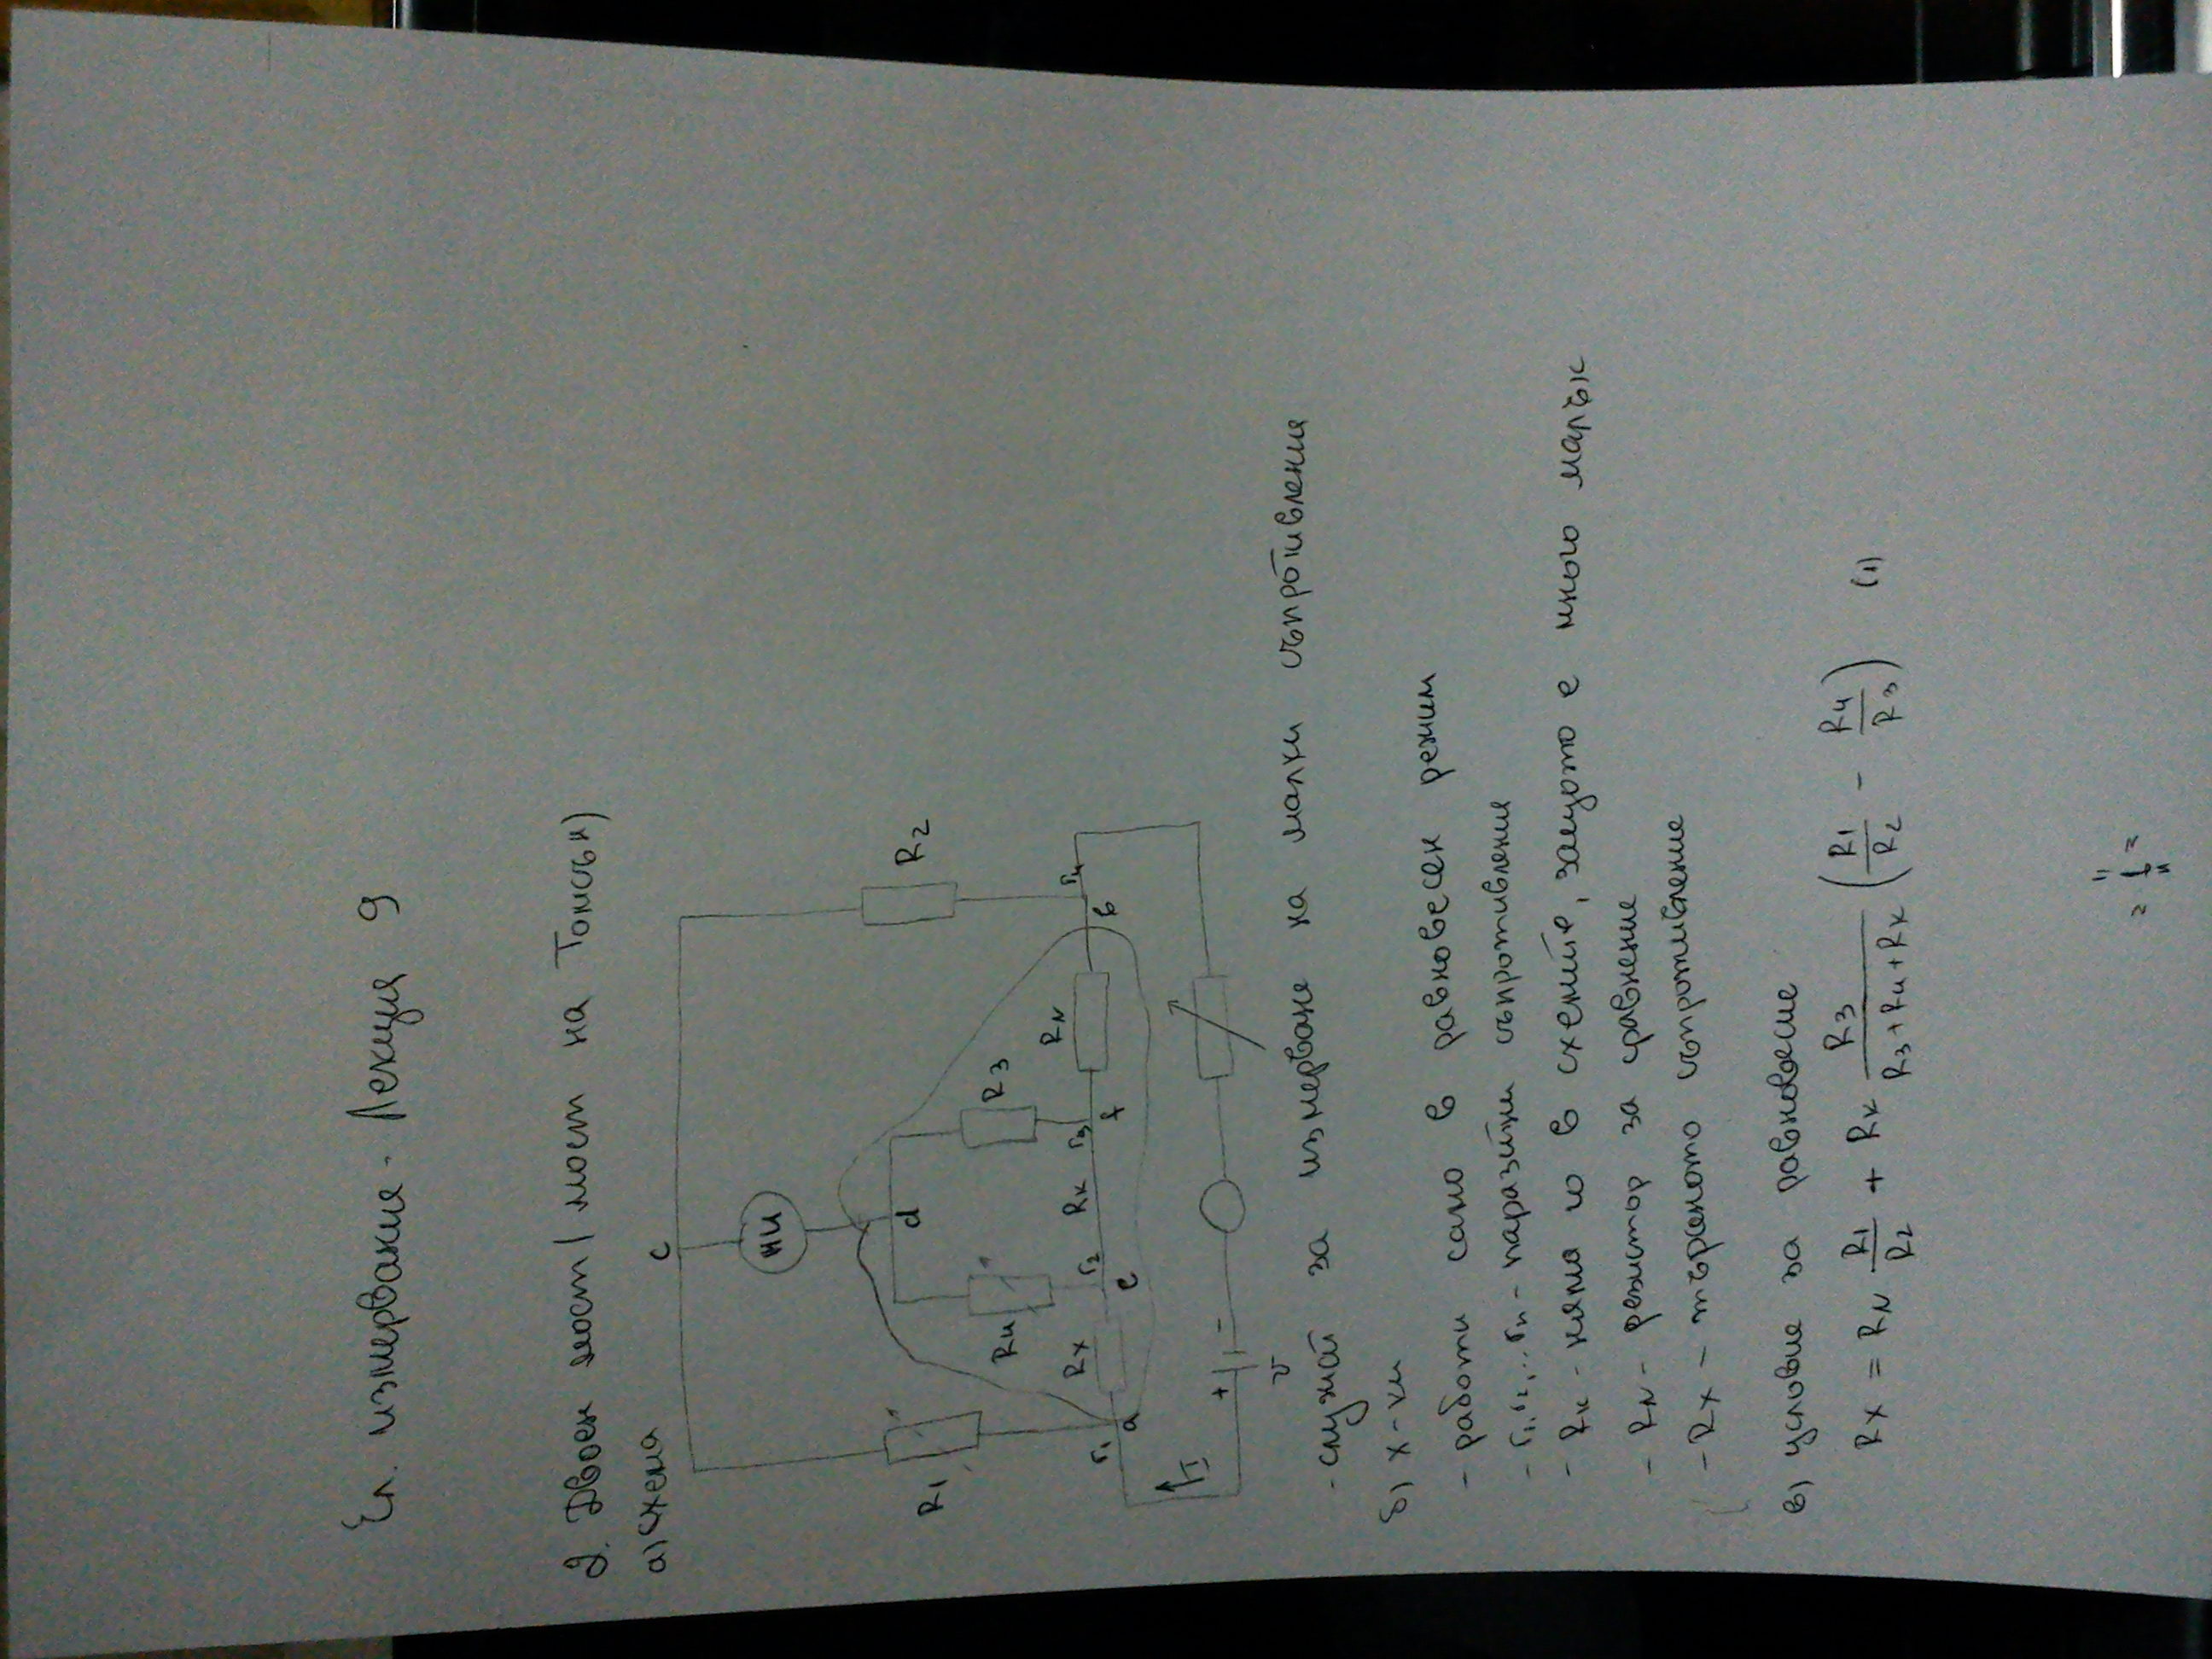 Ел. измервание - Лекция 9
2. Двоен мост (мост на Томсън)
а) схема
c
НИ
R1
R2
d
R4
R3
r1
a
Rx
r2
e
Rк
r3
f
RN
b
r4
I
+
-
U
- служат за измерване на малки съпротивления
б) х-ки
- работи само в равновесен режим
- r1, r2,... rn - паразитни съпротивления
- Rк - няма го в схемите, защото е много малък
- RN - резистор за сравнение
- Rx - търсеното съпротивление
в) условие за равновесие
Rx = RN R1/R2 + Rк R3/(R3+R4+Rк) (R1/R2 - R4/R3) (1)